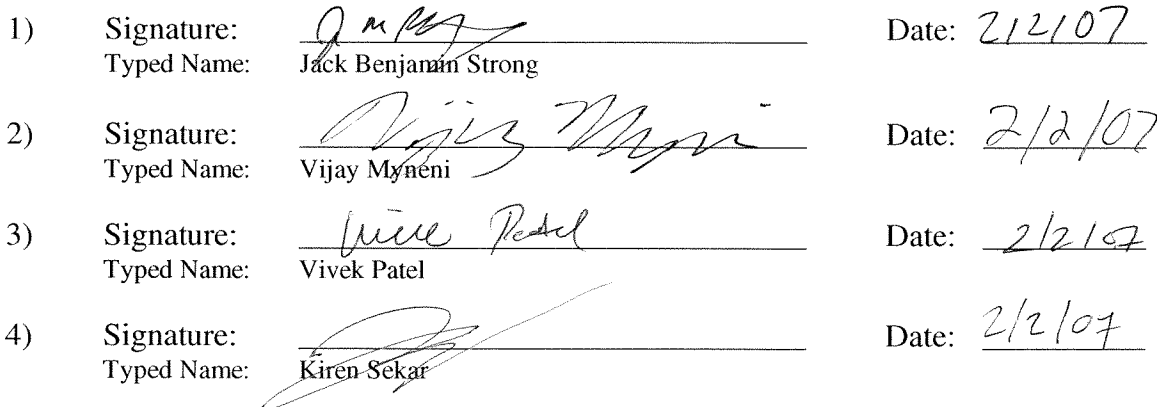 1) Signature: Date: 2/2/07
Typed Name: Jack Benjamin Strong
2) Signature: Vijay Myneni Date: 2/2/07
Typed Name: Vijay Myneni
3) Signature: Vivek Patel Date: 2/2/07
Typed Name: Vivek Patel
4) Signature: Date: 2/2/07
Typed Name: Kiren Sekar